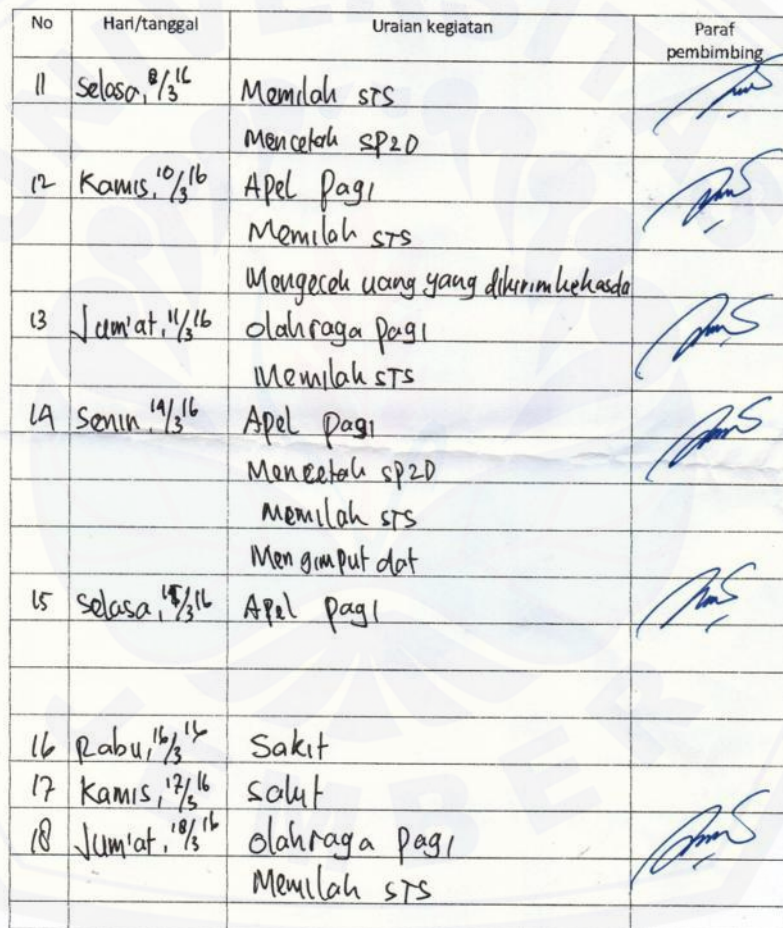 No Hari/tanggal Uraian kegiatan Paraf pembimbing
11 Selasa, 8/3 16 Memilah STS
Mencetak SP2D
12 Kamis, 10/3 16 Apel pagi
Memilah STS
Mengecek uang yang dikirim kekasda
13 Jum'at, 11/3 16 olahraga pagi
Memilah STS
14 Senin, 14/3 16 Apel pagi
Mencetak SP2D
Memilah STS
Mengimput dat
15 Selasa, 15/3 16 Apel pagi
16 Rabu, 16/3 16 Sakit
17 Kamis, 17/3 16 Sakit
18 Jum'at, 18/3 16 olahraga pagi
Memilah STS